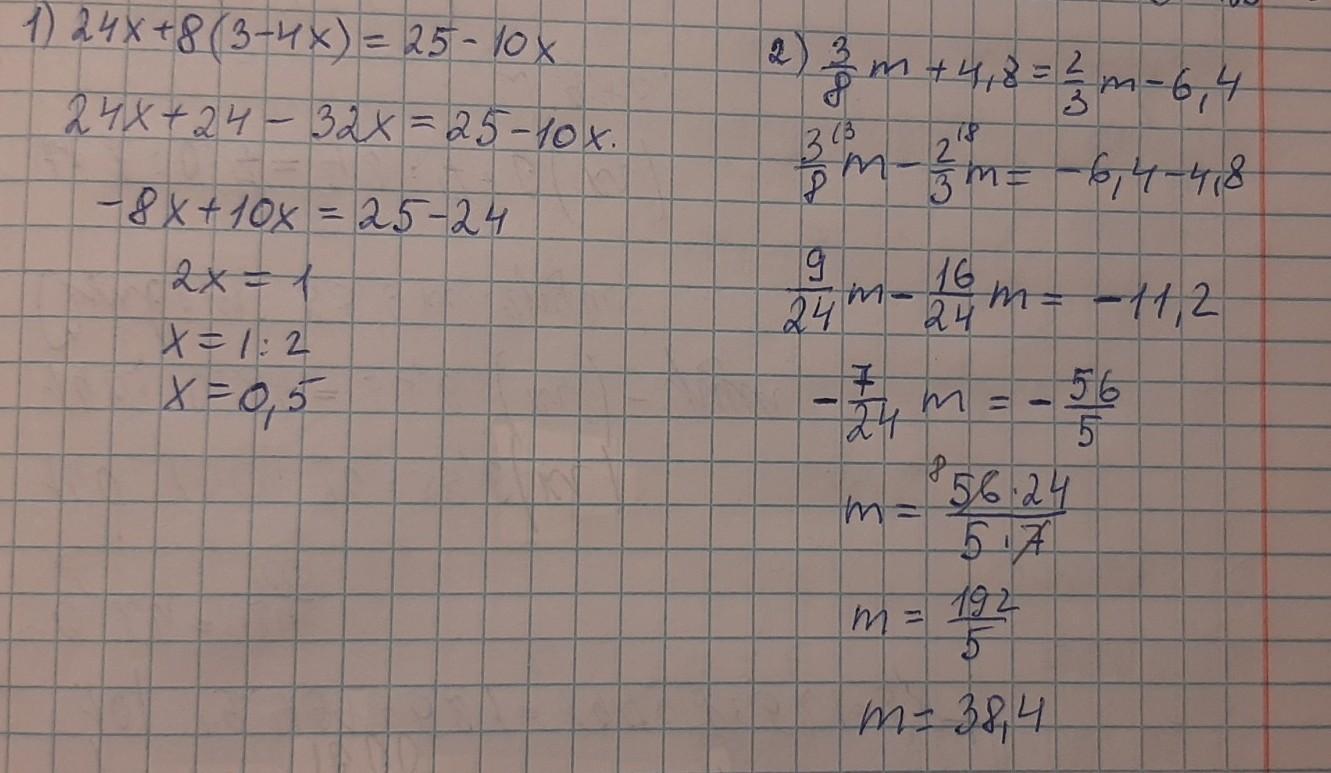 1) 24x+8(3-4x)=25-10x
24x+24-32x=25-10x.
-8x+10x=25-24
2x=1
x=1:2
x=0,5
2) 3/8 m+4,8=2/3 m-6,4
3/8 (3 m-2/3 (8 m=-6,4-4,8
9/24 m-16/24 m=-11,2
-7/24 m=-56/5
m= 8 56·24/5·7
m=192/5
m=38,4